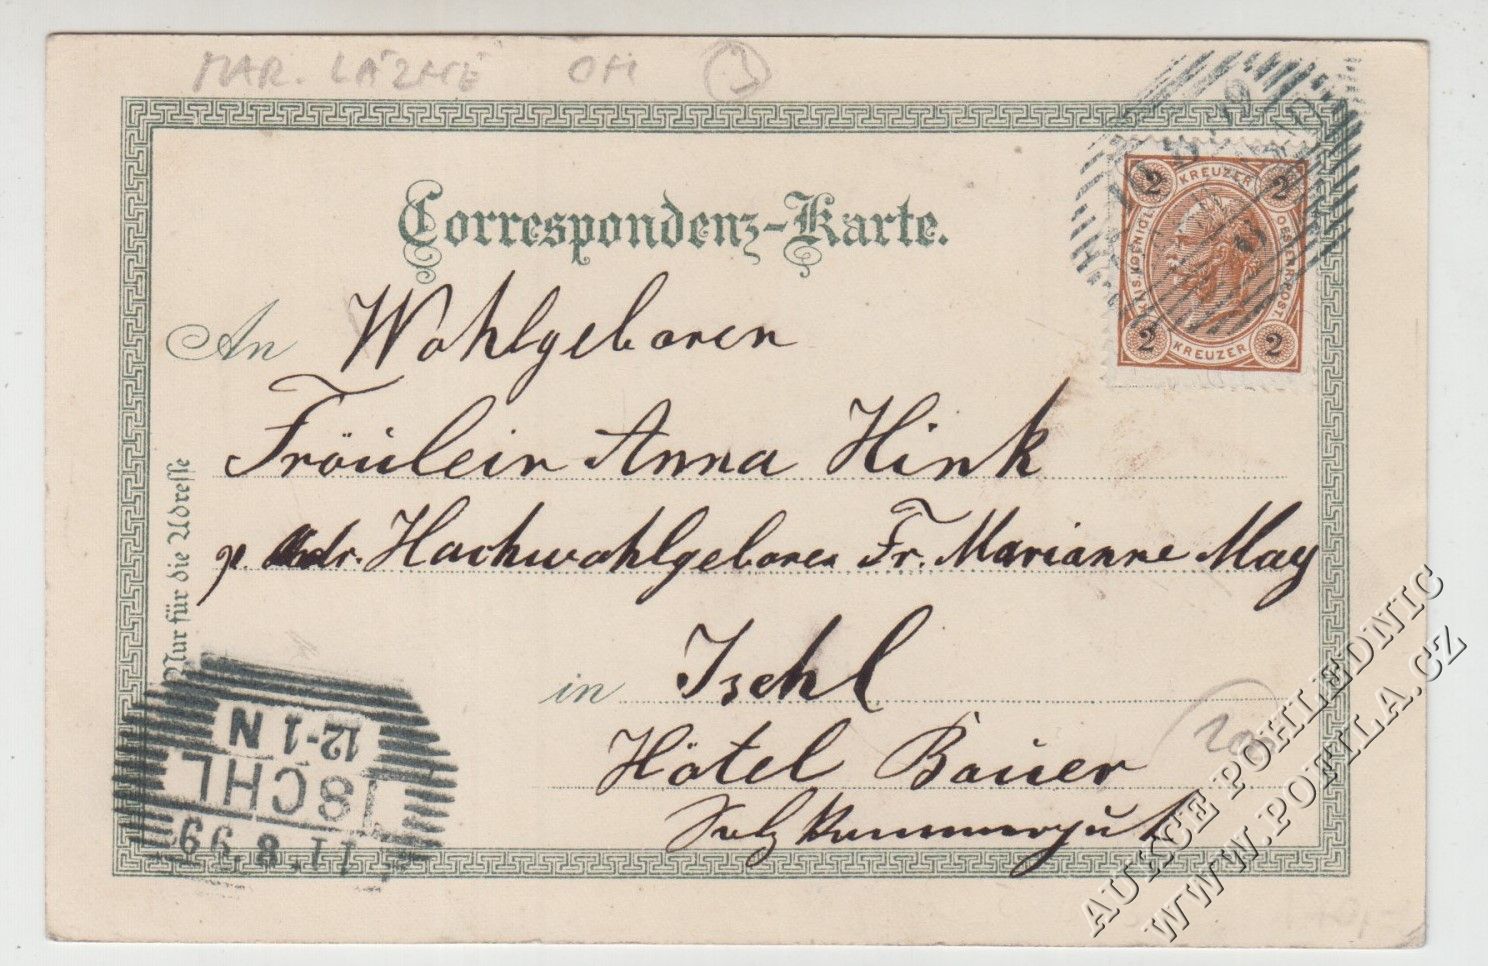 MAR. LÁZNĚ OM
Correspondenz-Karte.
2 KREUZER 2
2 KREUZER 2
An Wohlgeboren
Fräulein Anna Hink
p. Adr. Hochwohlgeboren Fr. Marianne May
in Ischl
Hôtel Bauer
Salzkammergut
Nur für die Adresse
ISCHL
12-1 N
11.8.99
AUKCE POHLEDNIC
WWW.POFILA.CZ